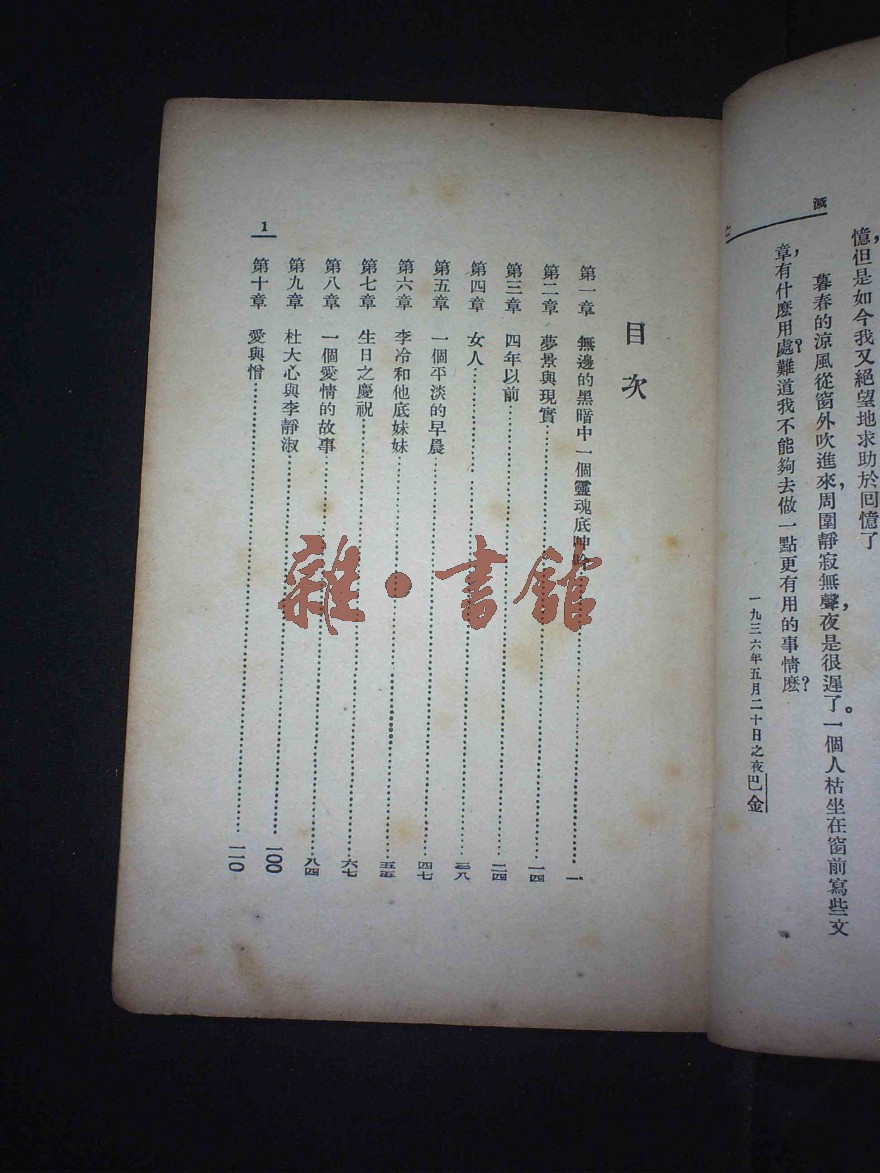 滅
憶，但是如今我又絕望地求助於回憶了
暮春的涼風從窗外吹進來，周圍靜寂無聲，夜是很遲了。一個人枯坐在窗前寫些文
章，有什麼用處？難道我不能夠去做一點更有用的事情麼？
一九三六年五月二十日之夜巴金
目次
第一章 無邊的黑暗中一個靈魂底呻吟 一
第二章 夢景與現實 一四
第三章 四年以前 二四
第四章 女人 三八
第五章 一個平淡的早晨 四七
第六章 李冷和他底妹妹 五五
第七章 生日之慶祝 六七
第八章 一個愛情的故事 八四
第九章 杜大心與李靜淑 一〇〇
第十章 愛與憎 一一〇
1
雜·書館